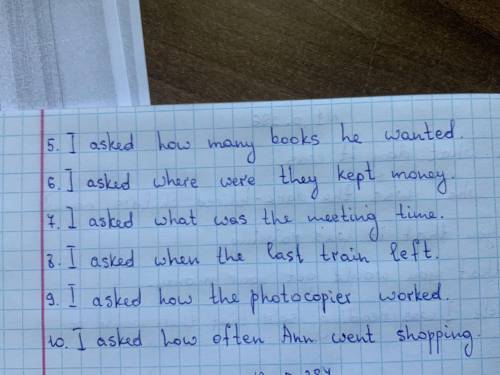 5. I asked how many books he wanted.
6. I asked where were they kept money.
7. I asked what was the meeting time.
8. I asked when the last train left.
9. I asked how the photocopier worked.
10. I asked how often Ann went shopping.